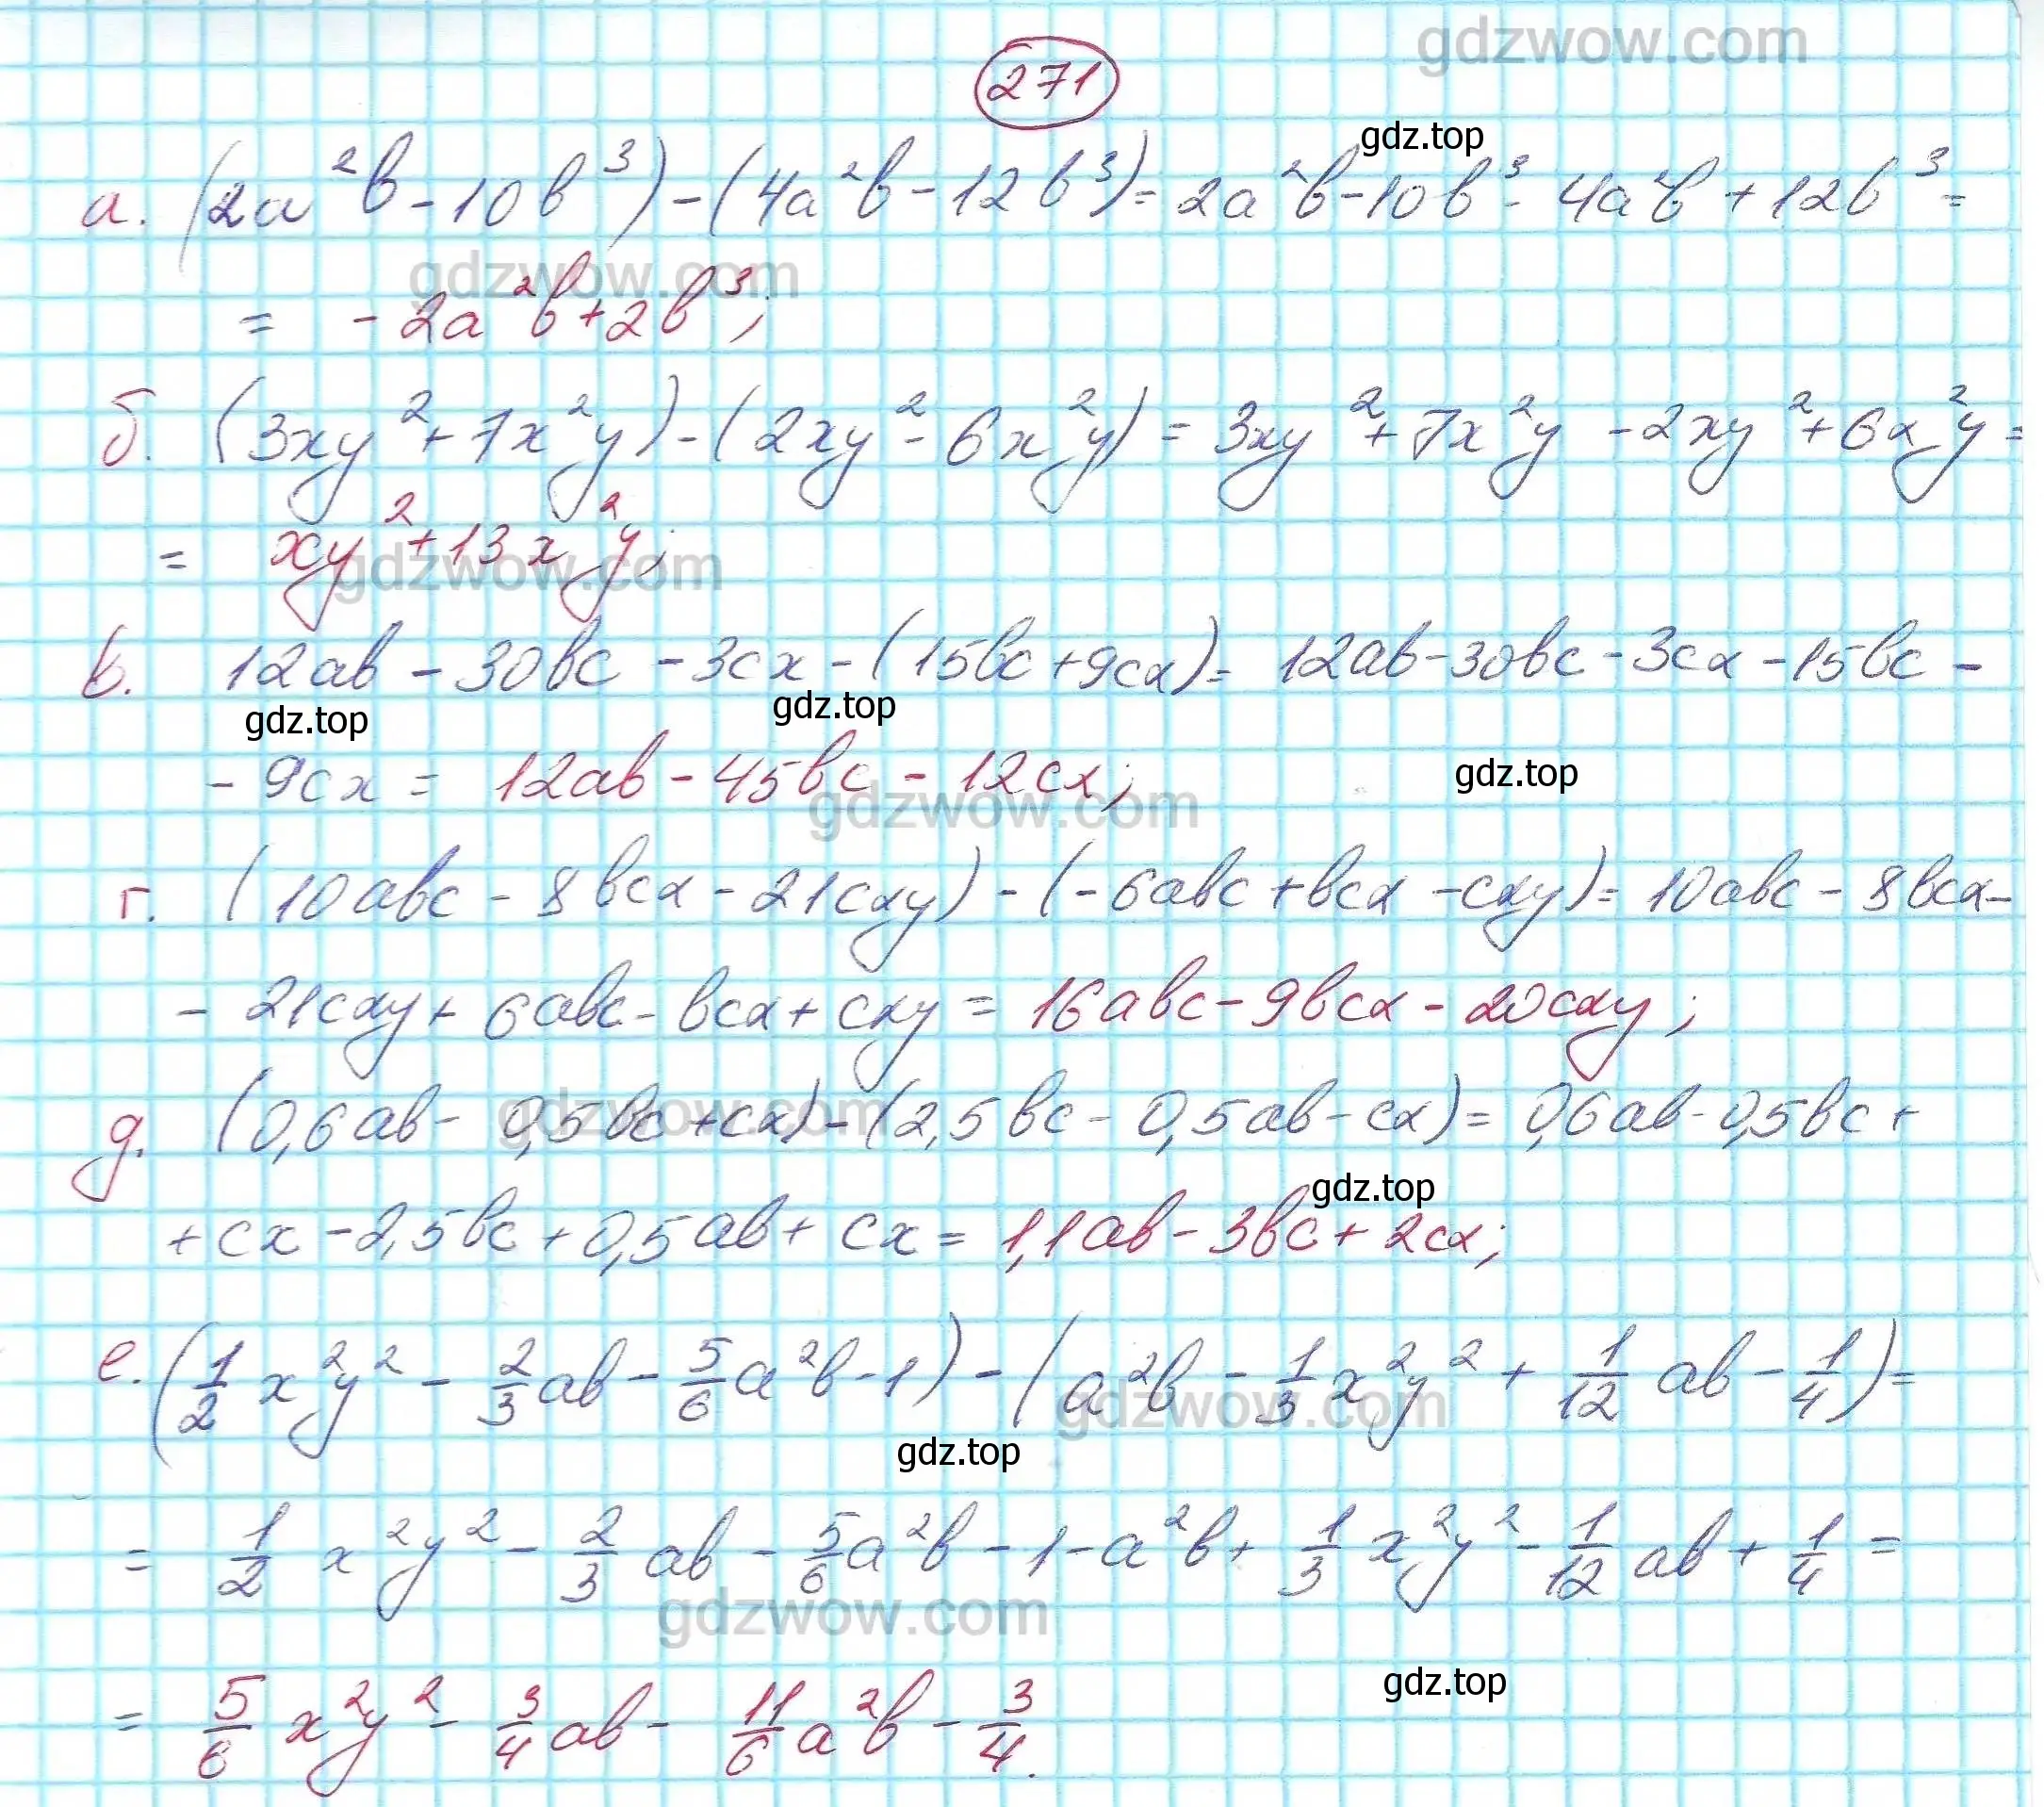 gdzwow.com
271
gdz.top
а. (2a²b - 10b³) - (4a²b - 12b³) = 2a²b - 10b³ - 4a²b + 12b³ =
gdzwow.com
= - 2a²b + 2b³;
б. (3xy² + 7x²y) - (2xy² - 6x²y) = 3xy² + 7x²y - 2xy² + 6x²y =
= xy² + 13x²y;
gdzwow.com
в. 12ab - 30bc - 3cx - (15bc + 9cx) = 12ab - 30bc - 3cx - 15bc -
gdz.top gdz.top
- 9cx = 12ab - 45bc - 12cx;
gdz.top
gdzwow.com
г. (10abc - 8bcx - 21cxy) - (-6abc + bcx - cxy) = 10abc - 8bcx -
- 21cxy + 6abc - bcx + cxy = 16abc - 9bcx - 20cxy;
gdzwow.com
д. (0,6ab - 0,5bc + cx) - (2,5bc - 0,5ab - cx) = 0,6ab - 0,5bc +
gdz.top
+ cx - 2,5bc + 0,5ab + cx = 1,1ab - 3bc + 2cx;
е. (1/2 x²y² - 2/3 ab - 5/6 a²b - 1) - (a²b - 1/3 x²y² + 1/12 ab - 1/4) =
gdzwow.com
gdz.top
= 1/2 x²y² - 2/3 ab - 5/6 a²b - 1 - a²b + 1/3 x²y² - 1/12 ab + 1/4 =
gdzwow.com
gdz.top
= 5/6 x²y² - 3/4 ab - 11/6 a²b - 3/4.